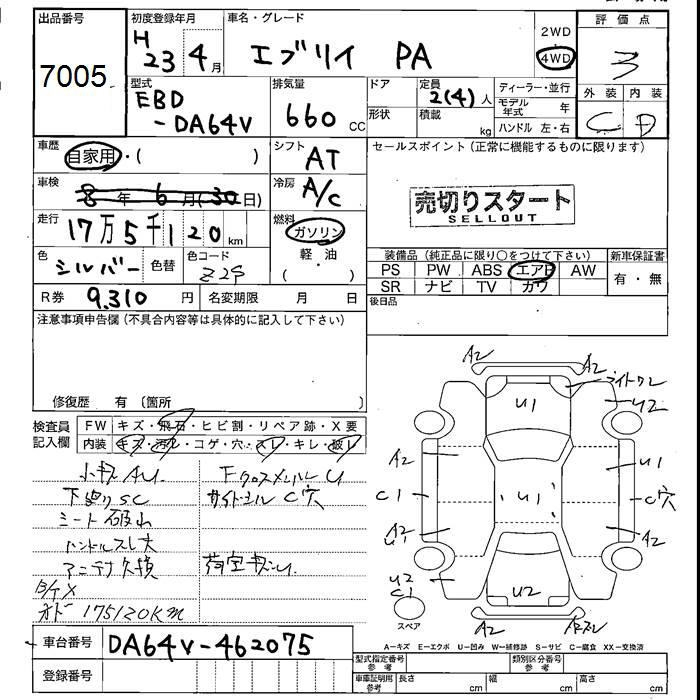 出品番号
7005
初度登録年月
H 23 4月
車名・グレード
エブリイ PA
2WD
4WD
評価点
3
外装 内装
C D
型式
EBD
-DA64V
排気量
660 cc
ドア
形状
定員
2(4)人
積載 kg
ディーラー・並行
モデル年式 年
ハンドル 左・右
車歴
自家用・( )
シフト
AT
セールスポイント(正常に機能するものに限ります)
売切りスタート
SELLOUT
車検
8年 6月(30日)
冷房
A/C
走行
17万5千120km
燃料
ガソリン
軽・油
( )
色
シルバー
色替
色コード
Z2S
装備品(純品に限り○をつけて下さい)
新車保証書
PS PW ABS エアB AW
SR ナビ TV カワ
有・無
R券 9,310 円
名変期限 月 日
後日品
注意事項申告欄(不具合内容等は具体的に記入して下さい)
修復歴 有 (箇所 )
検査員記入欄
FW キズ・飛石・ヒビ割・リペア跡・X要
内装 キズ・汚レ・コゲ・穴・スレ・キレ・破レ
小キズAU
下廻りSC
シート破れ
ハンドルスレ大
アンテナ欠損
オド 175120km
Fクロスメンバー U
サイドシル C穴
荷室キズU
A2
A2
ライトワレ
U1
U2
A2
U1
C1
U1
C穴
A2
U1
A2
U2
C1
U2
A2
スペア
A-キズ E-エクボ U-凹み W-補修跡 S-サビ C-腐食 XX-交換済
車台番号
DA64V-462075
登録番号
型式指定番号
参考
類別区分番号
参考
車庫証明用
参考
長さ cm
幅 cm
高さ cm